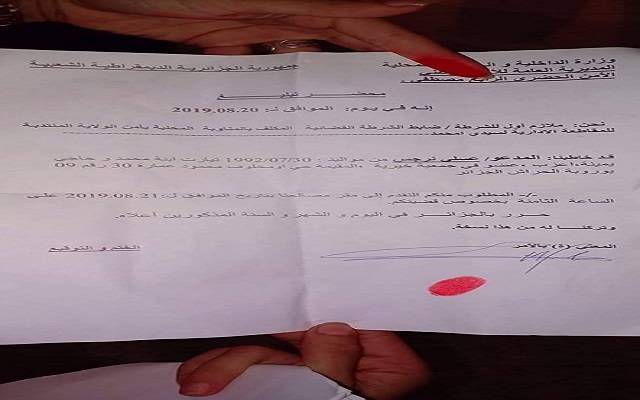 جمهورية الجزائرية الديمقراطية الشعبية
وزارة الداخلية و المحلية
المديرية العامة
الأمن الحضري الرابع مصطفى
محضر تبليغ
إنه في يوم: الموافق لـ: 2019.08.20
نحن: ملازم أول للشرطة / ضابط الشرطة القضائية المكلف بالمناوبة المحلية بأمن الولاية المنتدبة
للمقاطعة الادارية لسيدي امحمد
قد خاطبنا: المدعو/ عسلي نرجس من مواليد: 1992/07/30 تيارت ابنة محمد و حاجي
يمينة، أعزب، عضو في جمعية خيرية -المقيمة: حي محمود عمارة 30 رقم 09
بوروبة الحراش الجزائر
-/- المطلوب منكم التقدم إلى مقر مصلحتنا بتاريخ الموافق لـ: 2019.08.21 على
الساعة الثامنة بخصوص قضيتكم.
حرر بالجزائر في اليوم و الشهر و السنة المذكورين أعلاه.
وتركنا له من هذا نسخة.
المعني (ة) بالأمر
الختم و التوقيع